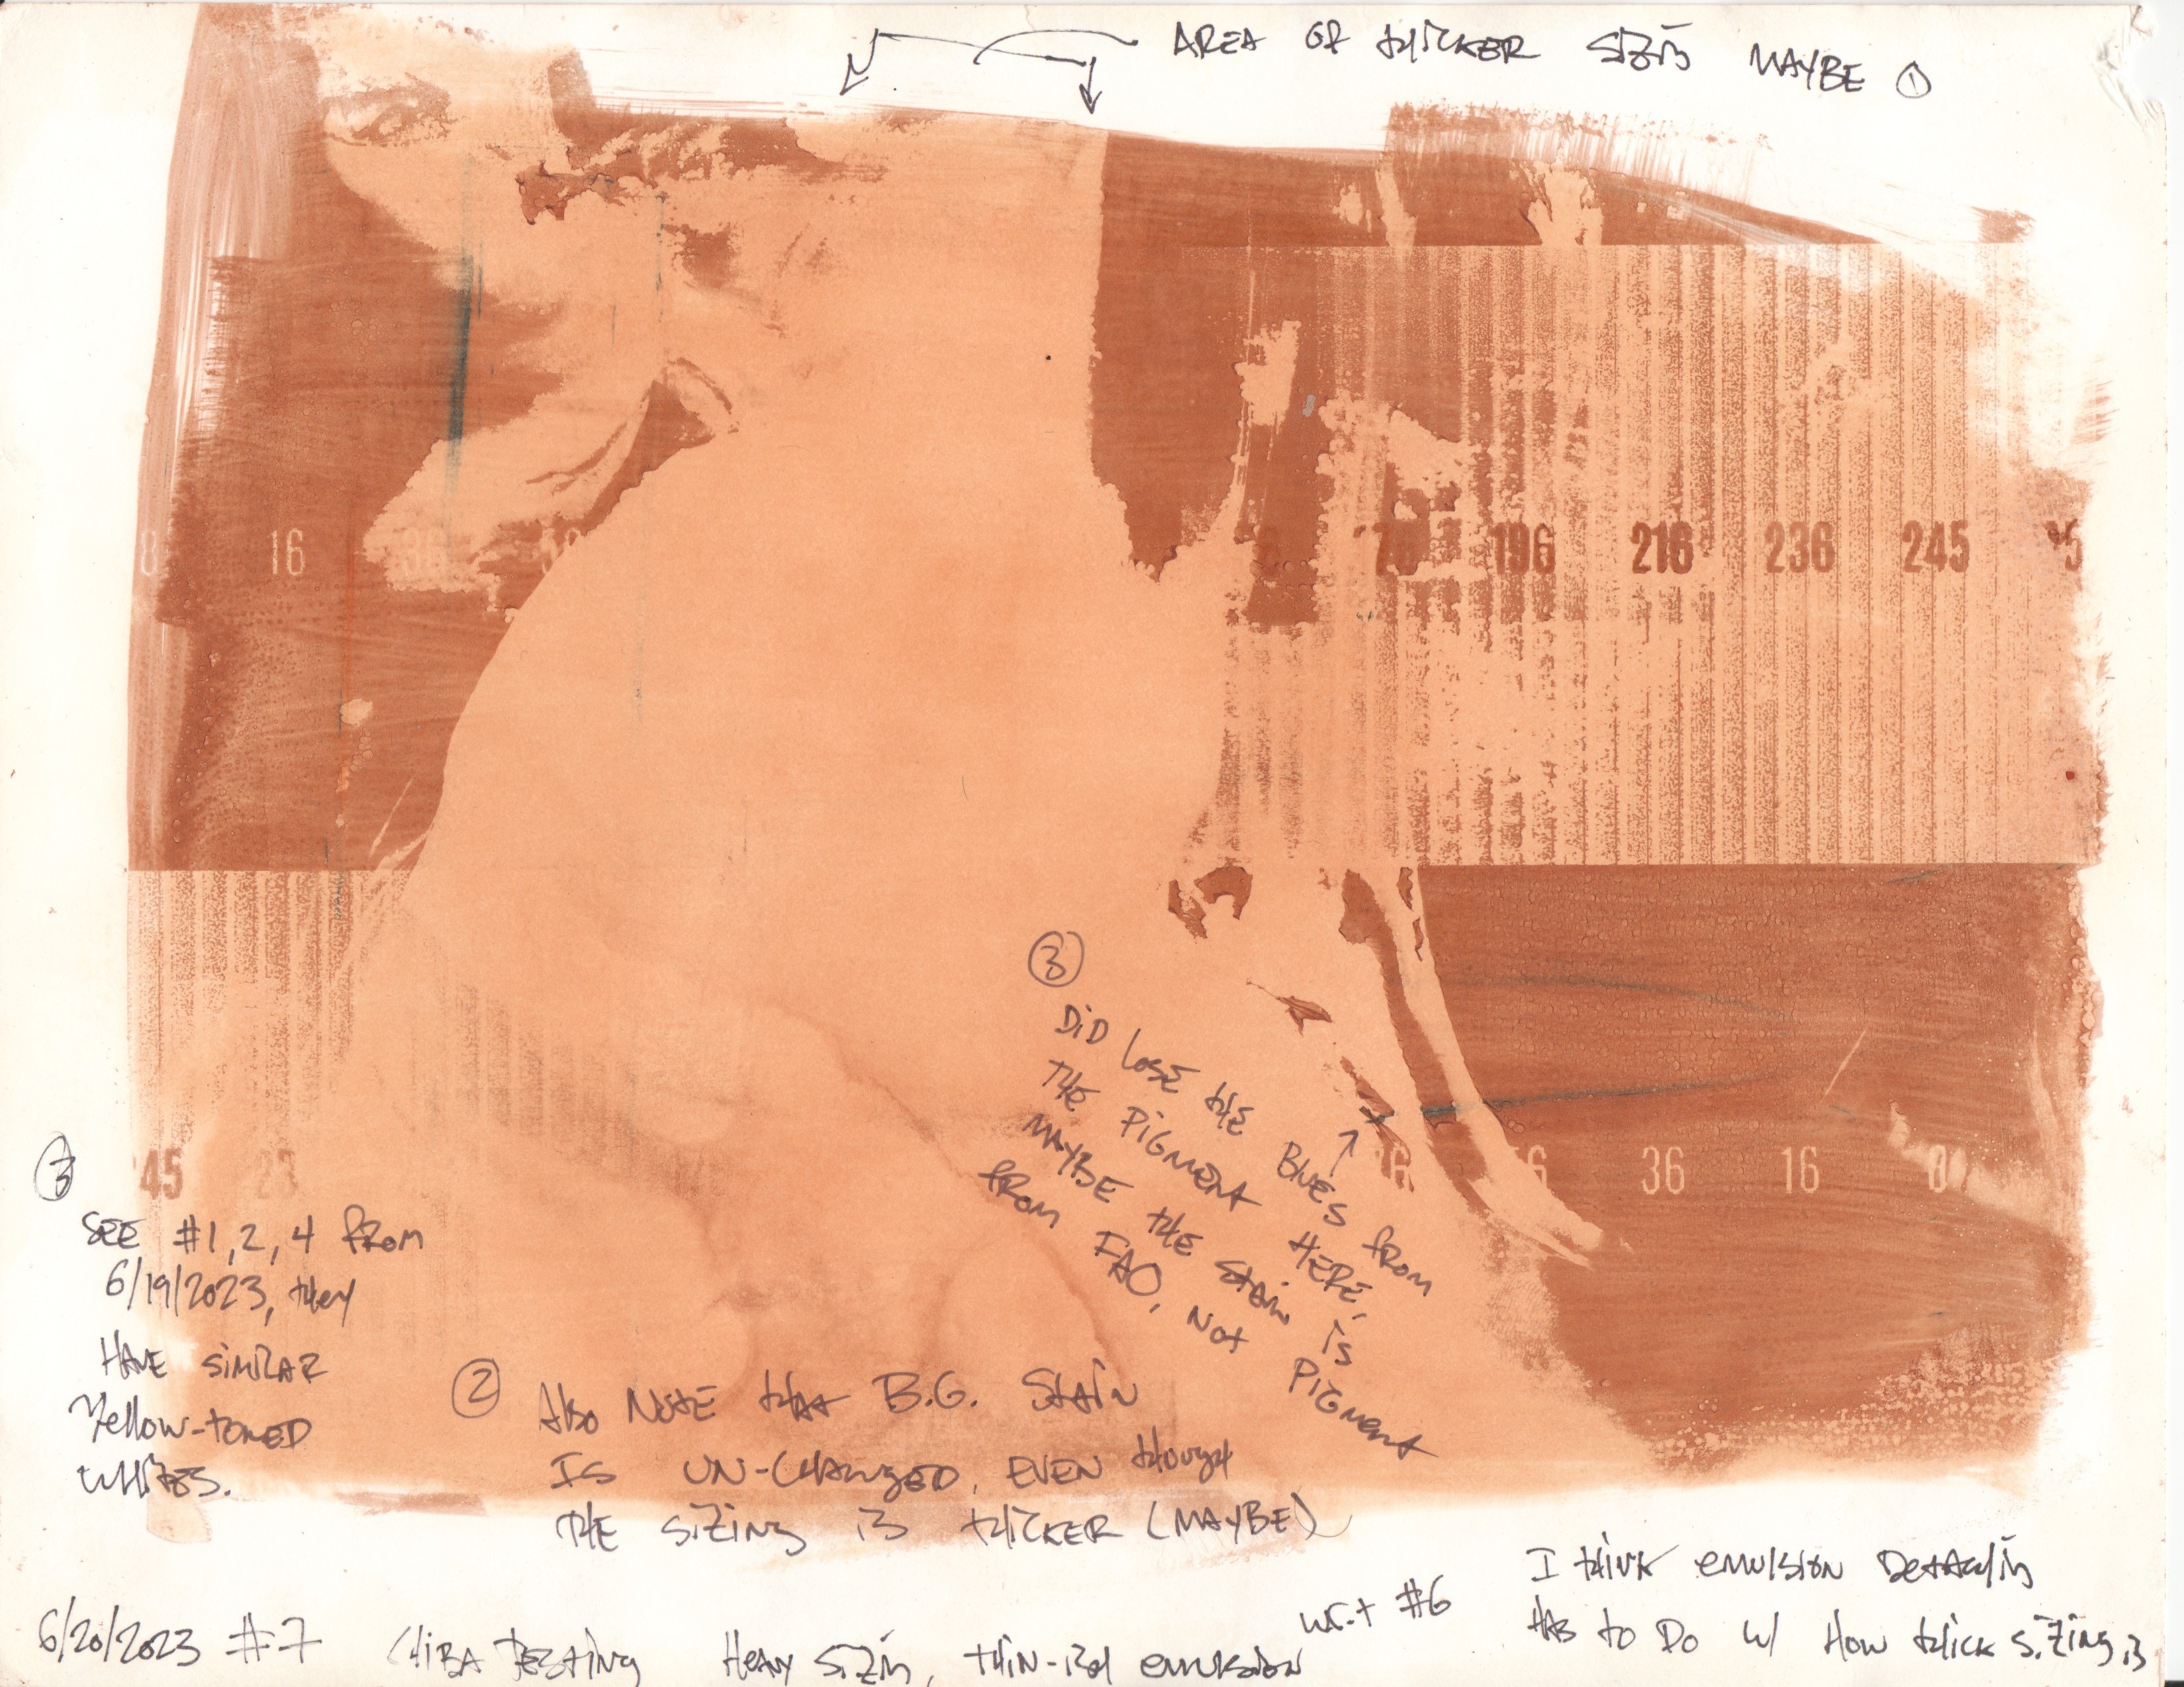 AREA OF thicker Sizin MAYBE ①
8 16 36 76 196 216 236 245
③
DiD lose the Blues from
the PIGMENT HERE,
MAYBE the Stain is
from FAO, Not PIGMENT
45 36 16 8
③
SEE #1, 2, 4 from
6/19/2023, they
HAVE SIMILAR
Yellow-toned
whites.
② Also NOTE that B.G. Stain
IS UN-CHANGED, EVEN though
THE SiZing is thicker (MAYBE)
I think emulsion Detachin
HAS to Do w/ How thick Sizing is
6/20/2023 #7 CHIBA TESTING HEAVY SiZin, thin-ish emulsion #6